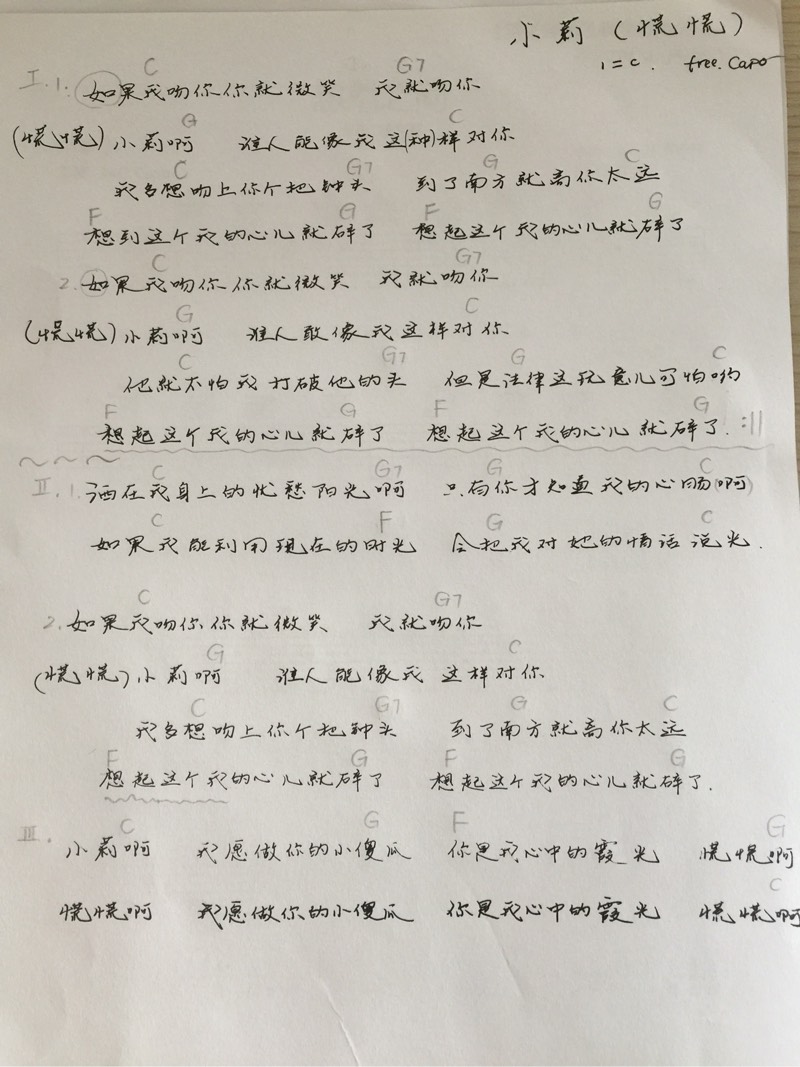 小莉（慌慌）
1=C. free. Capo
C G7
I.1. 如果我吻你你就微笑 我就吻你
G C
(慌慌)小莉啊 谁人能像我这(种)样对你
C G7 G C
我多想吻上你个把钟头 到了南方就离你太远
F G F G
想到这个我的心儿就碎了 想起这个我的心儿就碎了
C G7
2. 如果我吻你你就微笑 我就吻你
G C
(慌慌)小莉啊 谁人敢像我这样对你
C G7 G C
他就不怕我打破他的头 但是法律这玩意儿可怕哟
F G F G
想起这个我的心儿就碎了 想起这个我的心儿就碎了. :||
C G7 G C
II.1. 洒在我身上的忧愁阳光啊 只有你才知道我的心肠(啊)
C F G C
如果我能利用现在的时光 会把我对她的情话说光.
C G7
2. 如果我吻你你就微笑 我就吻你
G C
(慌慌)小莉啊 谁人能像我 这样对你
C G7 G C
我多想吻上你个把钟头 到了南方就离你太远
F G F G
想起这个我的心儿就碎了 想起这个我的心儿就碎了.
C G F G
III. 小莉啊 我愿做你的小傻瓜 你是我心中的霞光 慌慌啊
C
慌慌啊 我愿做你的小傻瓜 你是我心中的霞光 慌慌啊